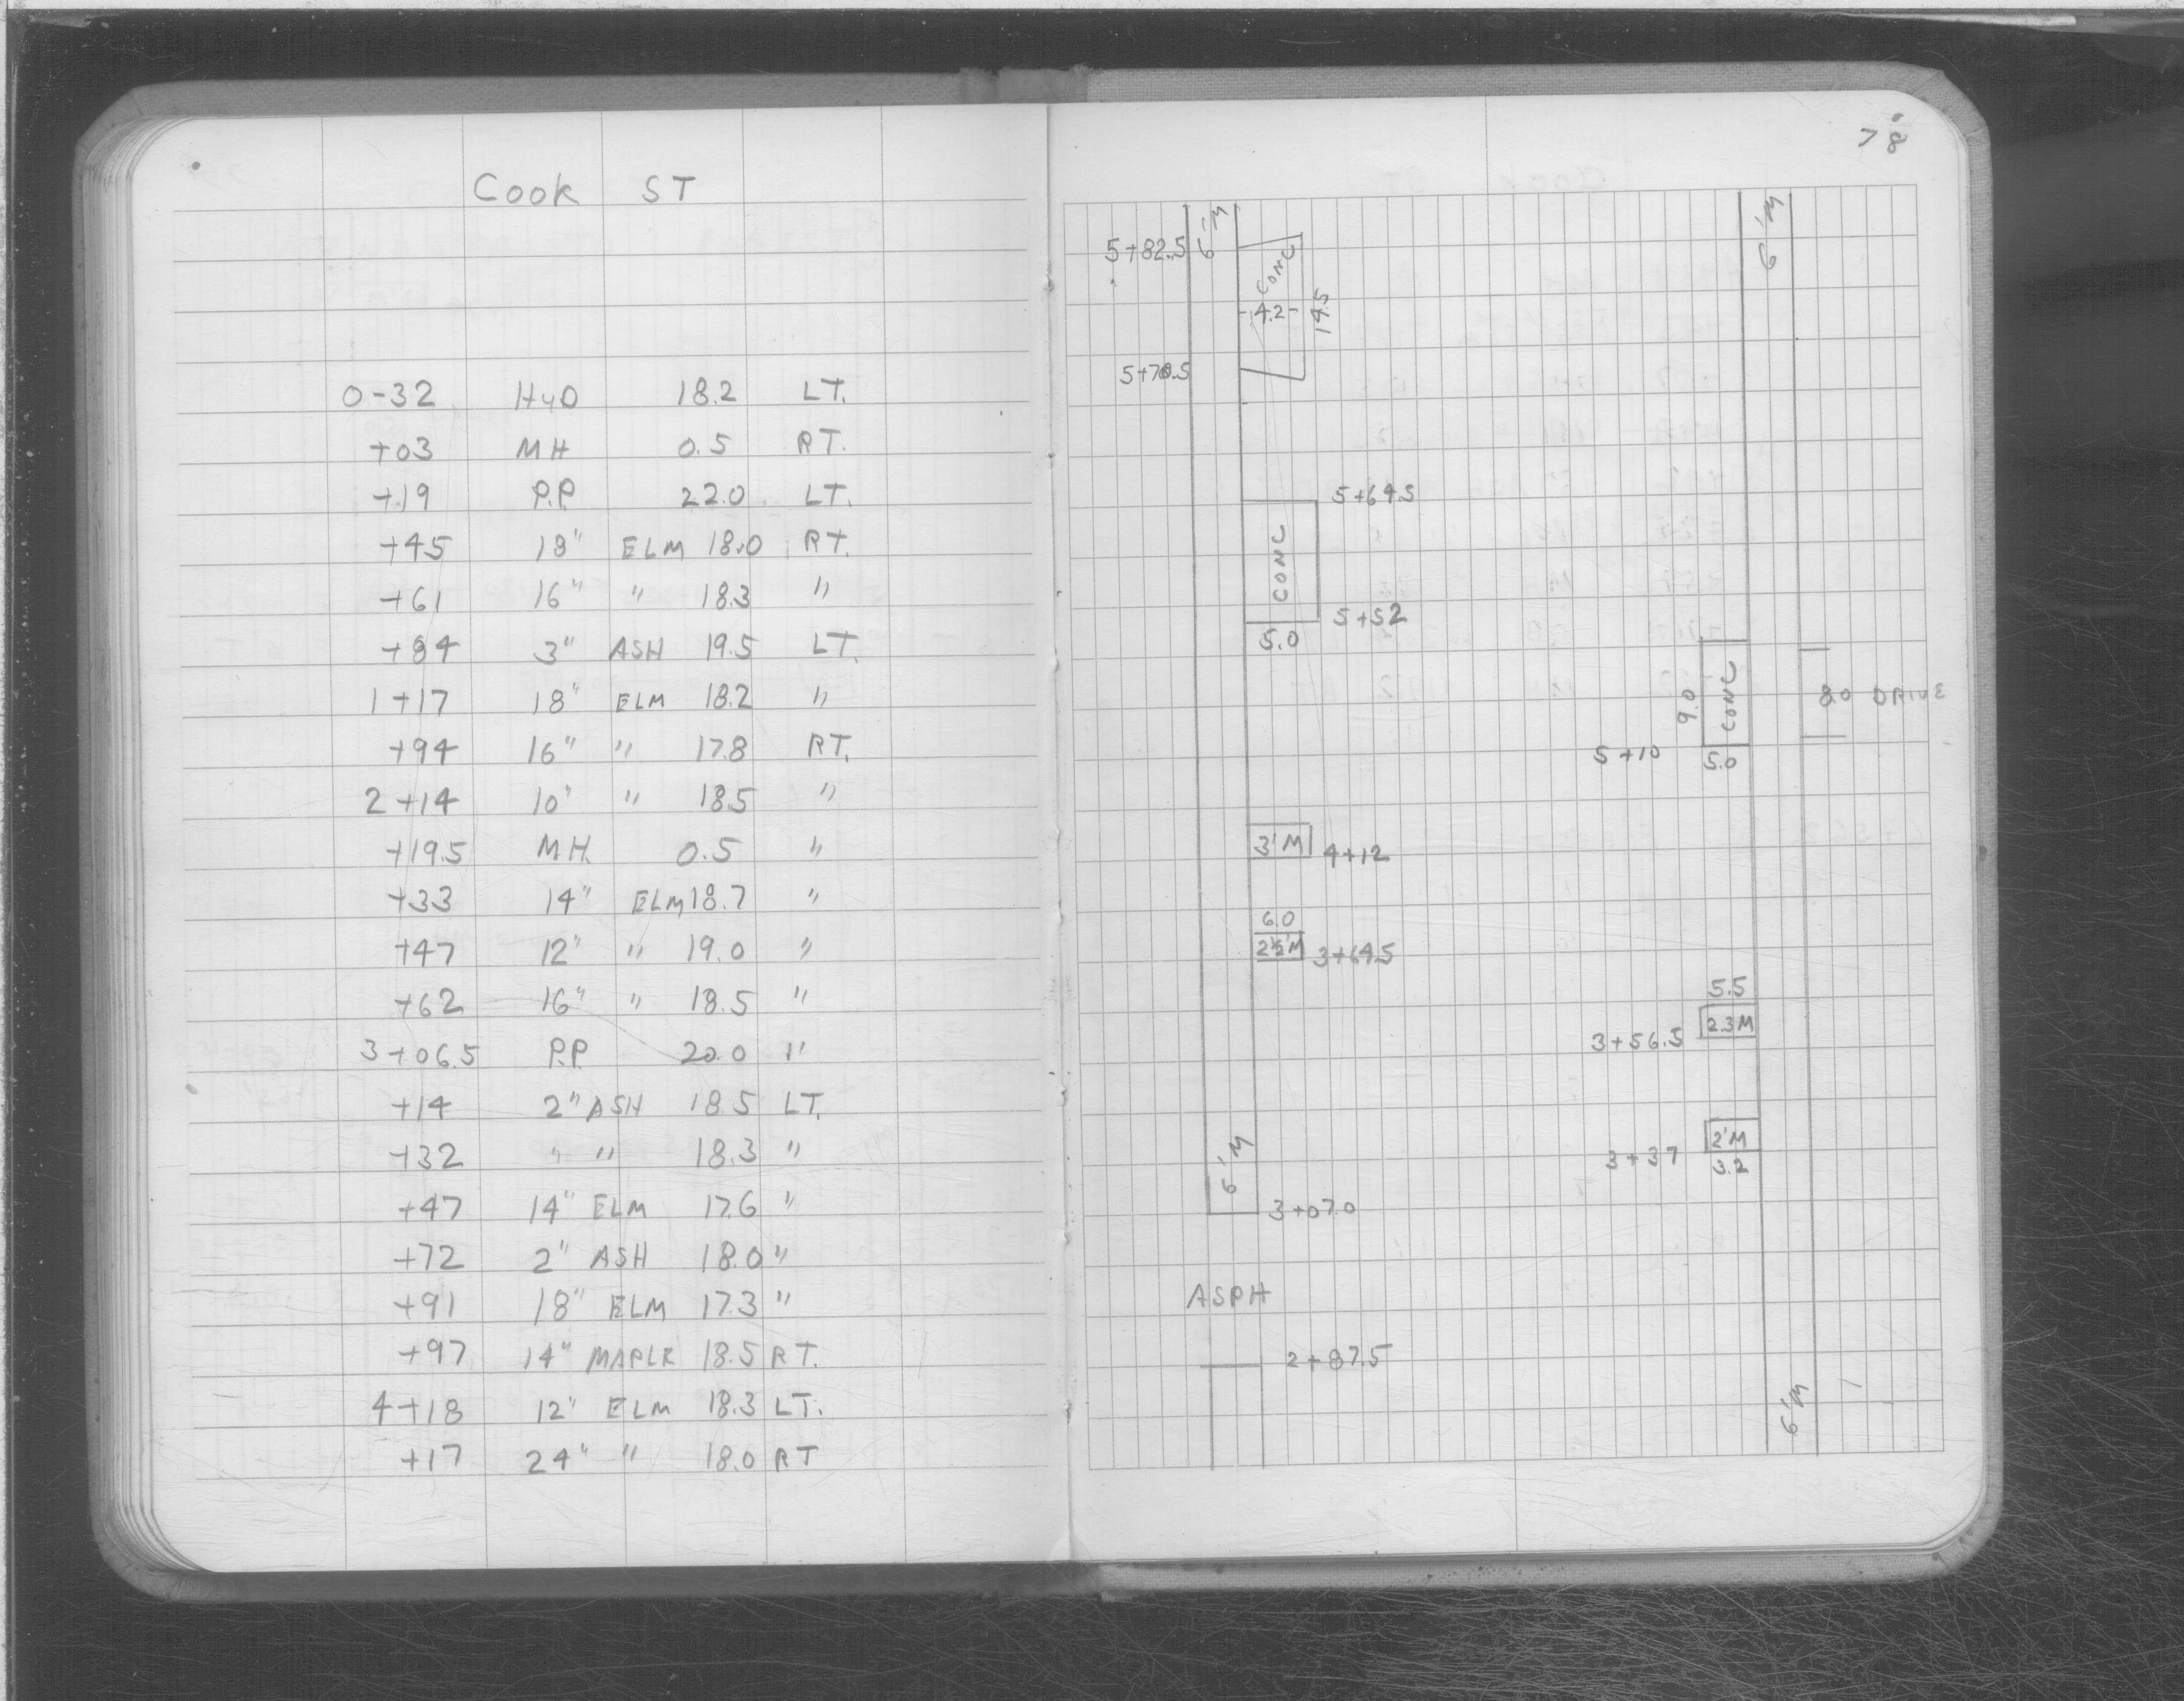 Cook ST
0-32 HYD 18.2 LT.
+03 MH 0.5 RT.
+19 P.P. 22.0 LT.
+45 18" ELM 18.0 RT.
+61 16" " 18.3 "
+84 3" ASH 19.5 LT.
1+17 18" ELM 18.2 "
+94 16" " 17.8 RT.
2+14 10" " 18.5 "
+19.5 M.H. 0.5 "
+33 14" ELM 18.7 "
+47 12" " 19.0 "
+62 16" " 18.5 "
3+06.5 P.P. 20.0 "
+14 2" ASH 18.5 LT.
+32 " " 18.3 "
+47 14" ELM 17.6 "
+72 2" ASH 18.0 "
+91 18" ELM 17.3 "
+97 14" MAPLE 18.5 RT.
4+18 12" ELM 18.3 LT.
+17 24" " 18.0 RT
78
6'M 6'M
5+82.5 CONC
-4.2- 14.5
5+64.5
CONC
5+52
5.0
9.0 CONC 8.0 DRIVE
5+10 5.0
3'M 4+12
6.0
2½'M 3+64.5
5.5
2.3M
3+56.5
2'M
3+37 3.2
6'M
3+07.0
ASPH
2+87.5
6'M